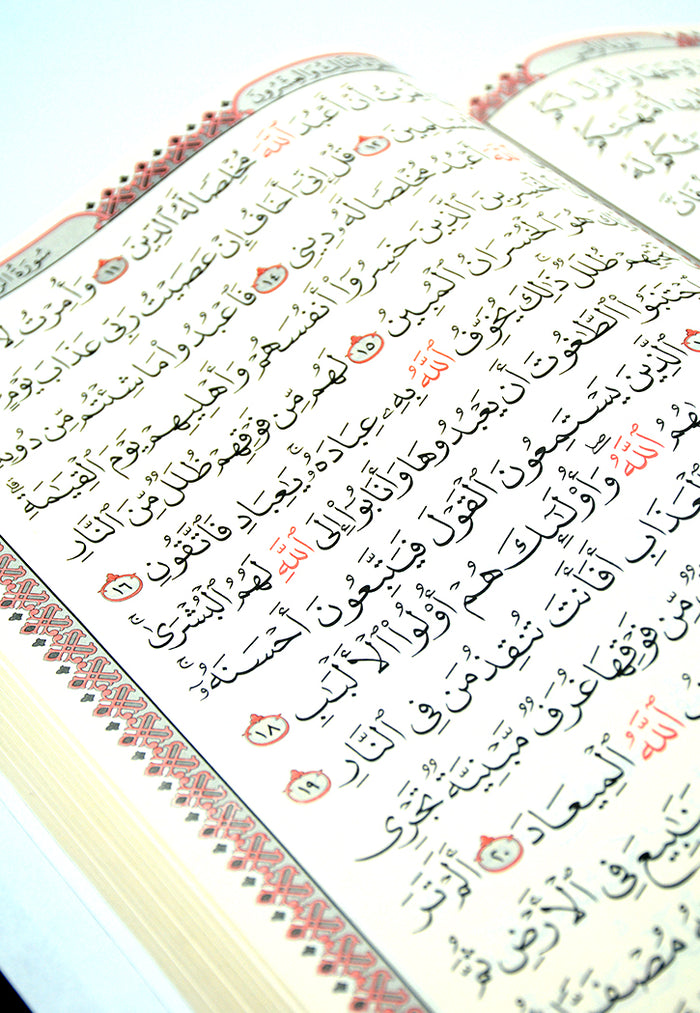 سُورَةُ
وَٱلْعِشْرُونَ
أَنْ أَعْبُدَ ٱللَّهَ مُخْلِصًا لَّهُ ٱلدِّينَ ١١ وَأُمِرْتُ
١٢ قُلْ إِنِّىٓ أَخَافُ إِنْ عَصَيْتُ رَبِّى عَذَابَ يَوْمٍ
أَعْبُدُ مُخْلِصًا لَّهُۥ دِينِى ١٤ فَٱعْبُدُوا۟ مَا شِئْتُم مِّن دُونِهِۦ
ٱلَّذِينَ خَسِرُوٓا۟ أَنفُسَهُمْ وَأَهْلِيهِمْ يَوْمَ ٱلْقِيَٰمَةِ ۗ
هُوَ ٱلْخُسْرَانُ ٱلْمُبِينُ ١٥ لَهُم مِّن فَوْقِهِمْ ظُلَلٌ مِّنَ ٱلنَّارِ
ظُلَلٌ ۚ ذَٰلِكَ يُخَوِّفُ ٱللَّهُ بِهِۦ عِبَادَهُۥ ۚ يَٰعِبَادِ فَٱتَّقُونِ ١٦
ٱجْتَنَبُوا۟ ٱلطَّٰغُوتَ أَن يَعْبُدُوهَا وَأَنَابُوٓا۟ إِلَى ٱللَّهِ لَهُمُ ٱلْبُشْرَىٰ ۚ
ٱلَّذِينَ يَسْتَمِعُونَ ٱلْقَوْلَ فَيَتَّبِعُونَ أَحْسَنَهُۥٓ ۚ
ٱللَّهُ ۖ وَأُو۟لَٰٓئِكَ هُمْ أُو۟لُوا۟ ٱلْأَلْبَٰبِ ١٨
ٱلْعَذَابِ أَفَأَنتَ تُنقِذُ مَن فِى ٱلنَّارِ ١٩
مِّن فَوْقِهَا غُرَفٌ مَّبْنِيَّةٌ تَجْرِى
ٱللَّهُ ٱلْمِيعَادَ ٢٠ أَلَمْ تَرَ
يَنَٰبِيعَ فِى ٱلْأَرْضِ ثُمَّ